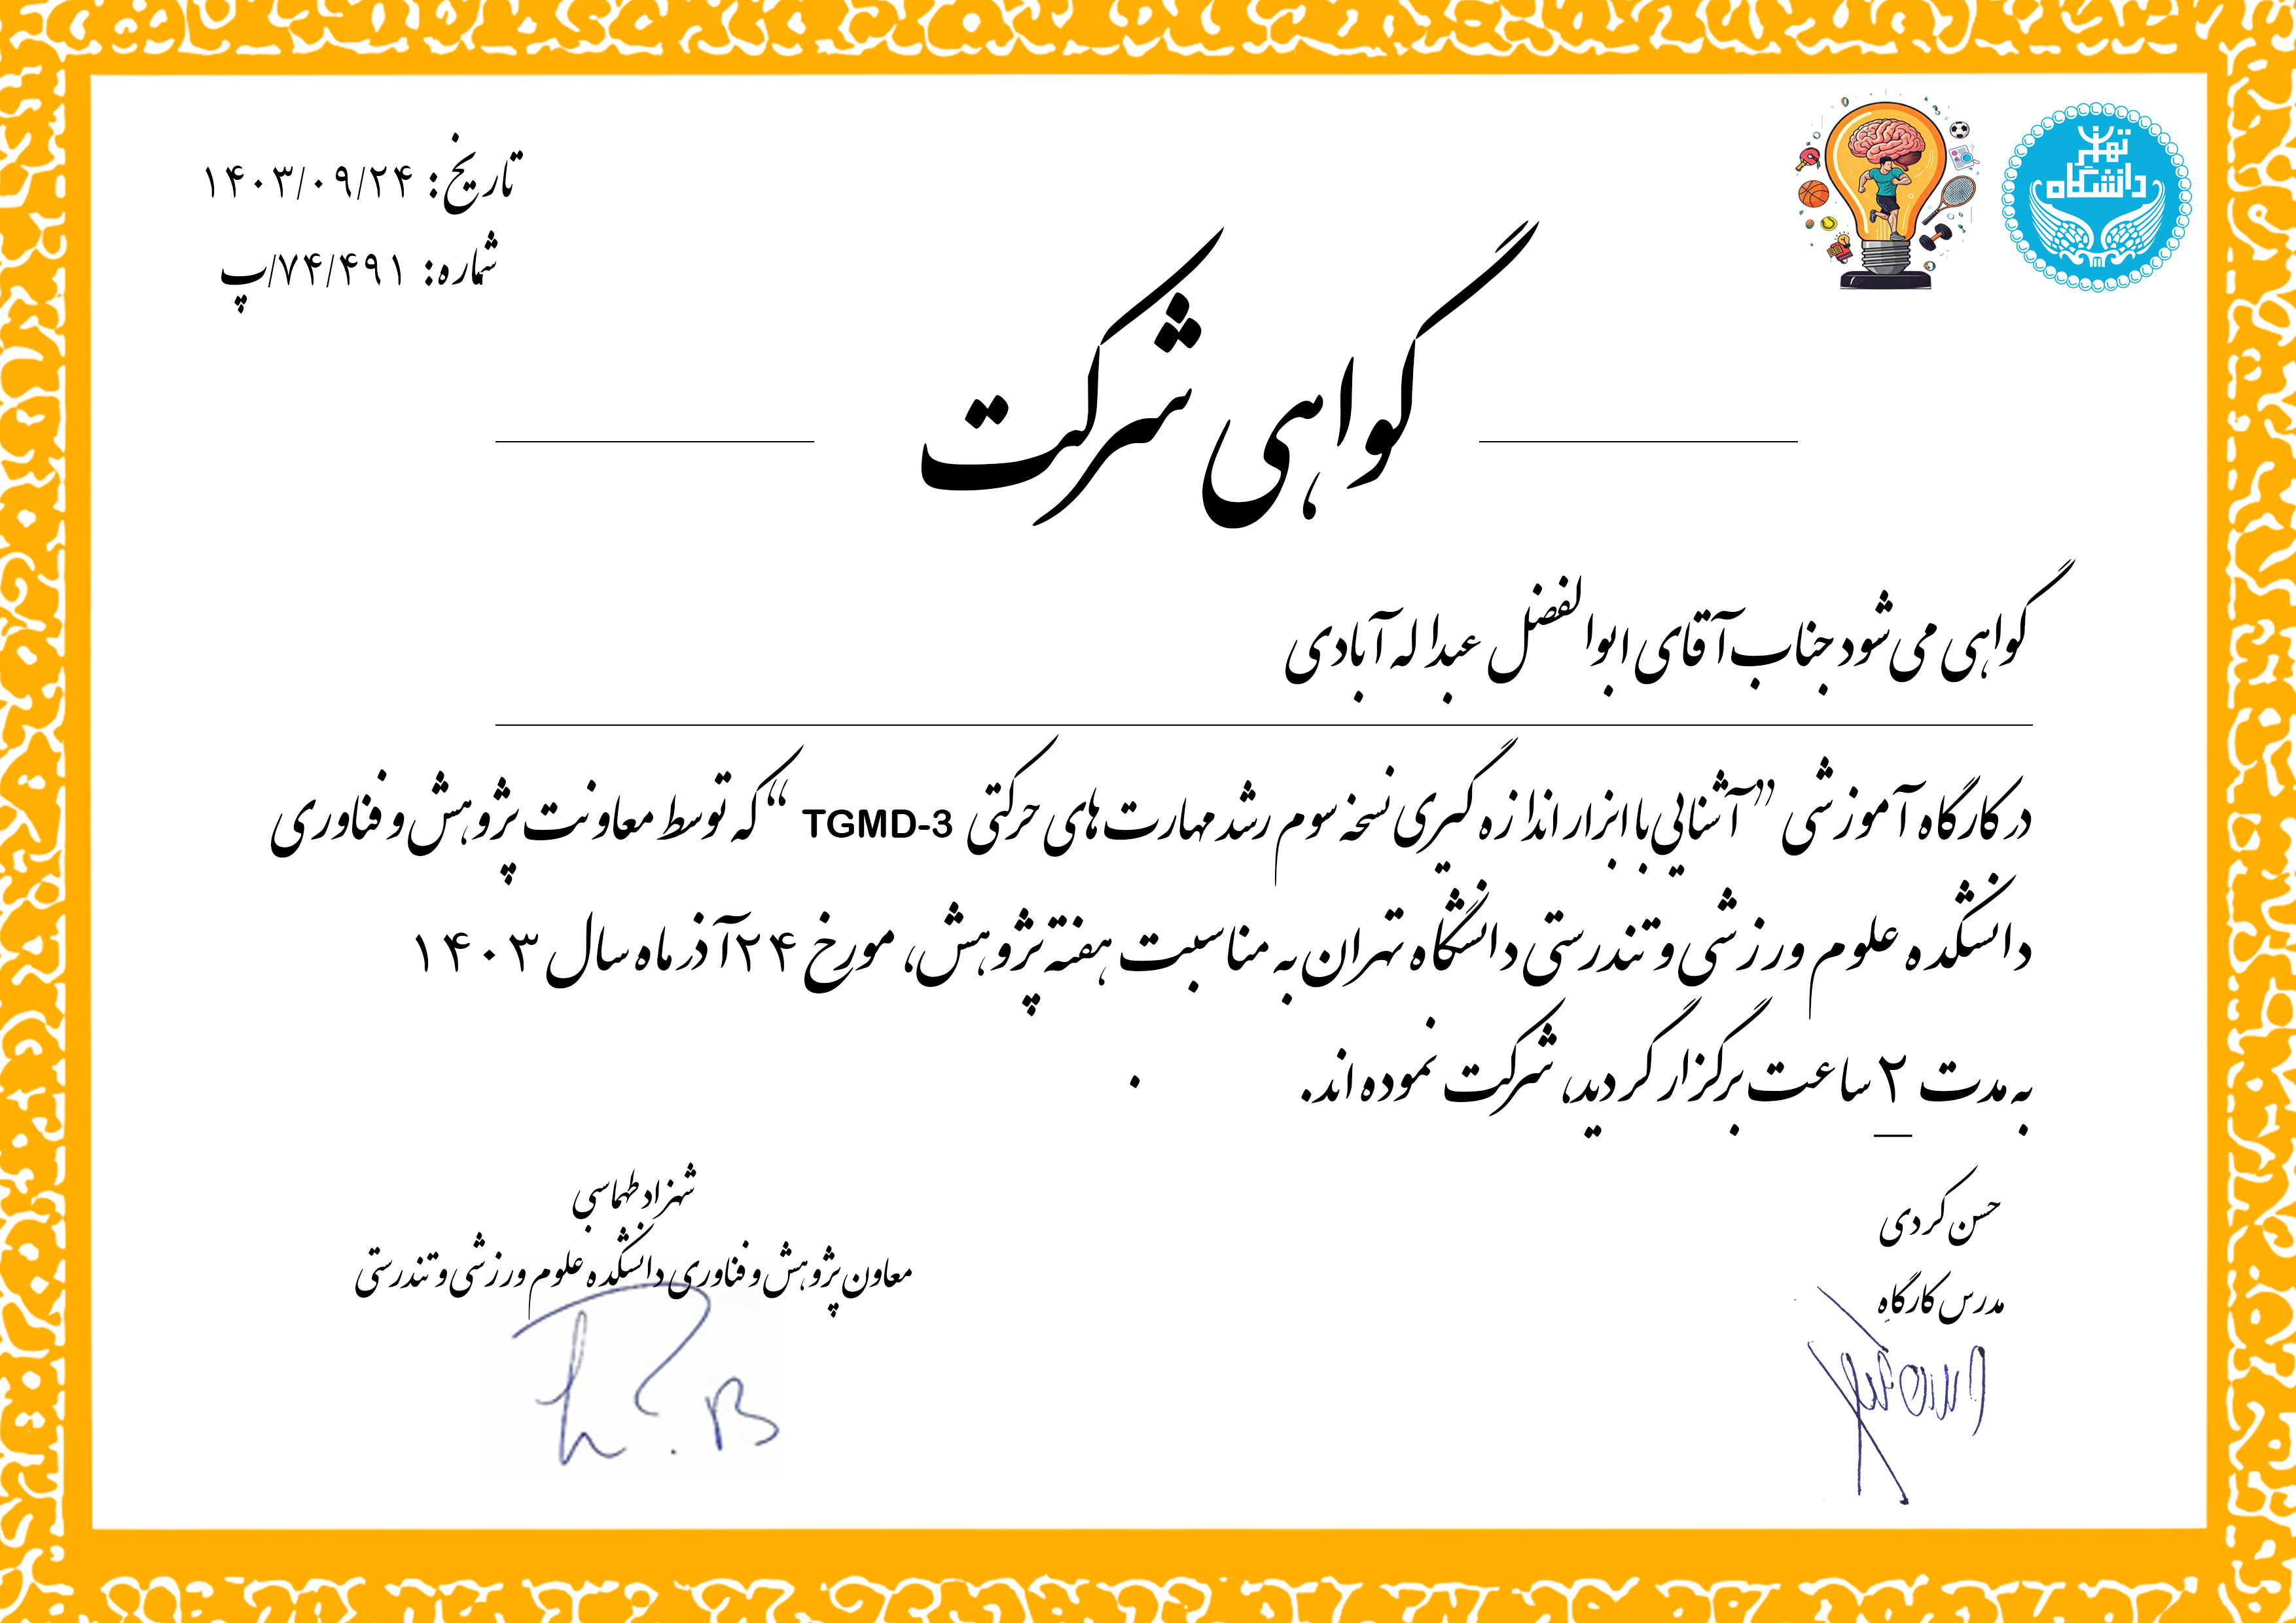 تهران
دانشگاه
تاریخ: ۱۴۰۳/۰۹/۲۴
شماره: ۷۴/۴۹۱/پ
گواهی شرکت
گواهی می شود جناب آقای ابوالفضل عبداله آبادی
در کارگاه آموزشی ”آشنایی با ابزار اندازه گیری نسخه سوم رشد مهارت های حرکتی TGMD-3 “ که توسط معاونت پژوهش و فناوری
دانشکده علوم ورزشی و تندرستی دانشگاه تهران به مناسبت هفته پژوهش، مورخ ۲۴ آذر ماه سال ۱۴۰۳
به مدت ۲ ساعت برگزار گردید، شرکت نموده اند.
حسن کردی
مدرس کارگاه
شهزاد طهماسبی
معاون پژوهش و فناوری دانشکده علوم ورزشی و تندرستی